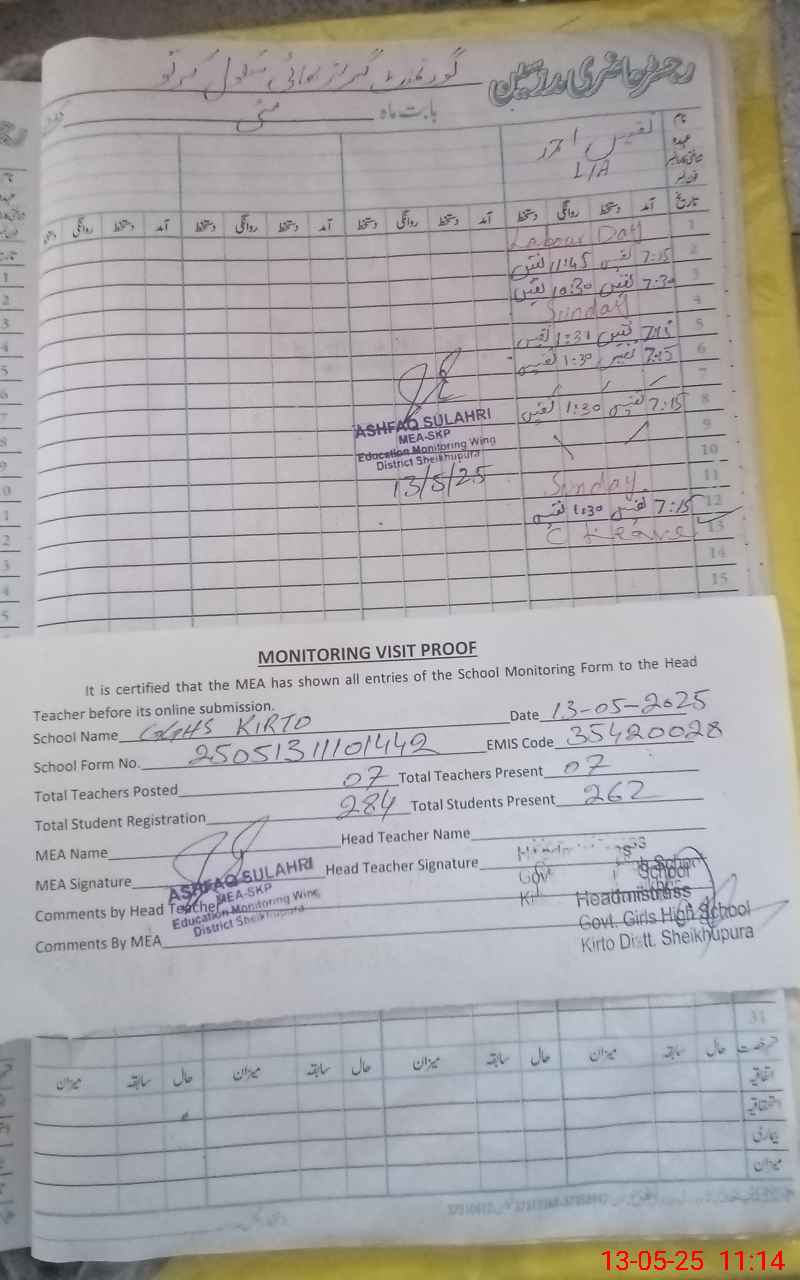 رجسٹر حاضری مدرسین گورنمنٹ گرلز ہائی سکول کرتو
بابت ماہ مئی
نام نفیس احمد
عہدہ L/A
تاریخ آمد دستخط روانگی دستخط آمد دستخط روانگی دستخط آمد دستخط روانگی دستخط آمد دستخط روانگی
1 Labour Day
2 7:15 نفیس 11:45 نفیس
3 7:30 نفیس 10:30 نفیس
4 Sunday
5 7:15 نفیس 1:31 نفیس
6 7:15 نفیس 1:30 نفیس
7
8 7:15 نفیس 1:30 نفیس
9
10
11 Sunday
12 7:15 نفیس 1:30 نفیس
13 C Leave
14
15
ASHFAQ SULAHRI
MEA-SKP
Education Monitoring Wing
District Sheikhupura
13/5/25
MONITORING VISIT PROOF
It is certified that the MEA has shown all entries of the School Monitoring Form to the Head
Teacher before its online submission.
School Name GGHS KIRTO Date 13-05-2025
School Form No. 25051311101442 EMIS Code 35420028
Total Teachers Posted 07 Total Teachers Present 07
Total Student Registration 284 Total Students Present 262
MEA Name Head Teacher Name
MEA Signature Head Teacher Signature
ASHFAQ SULAHRI
MEA-SKP
Education Monitoring Wing
District Sheikhupura
Comments by Head Teacher
Comments By MEA
Headmistress
Govt. Girls High School
Kirto Distt. Sheikhupura
31
رخصت حال سابقہ میزان حال سابقہ میزان حال سابقہ میزان حال سابقہ میزان
اتفاقیہ
استحقاقیہ
بیماری
میزان
13-05-25 11:14